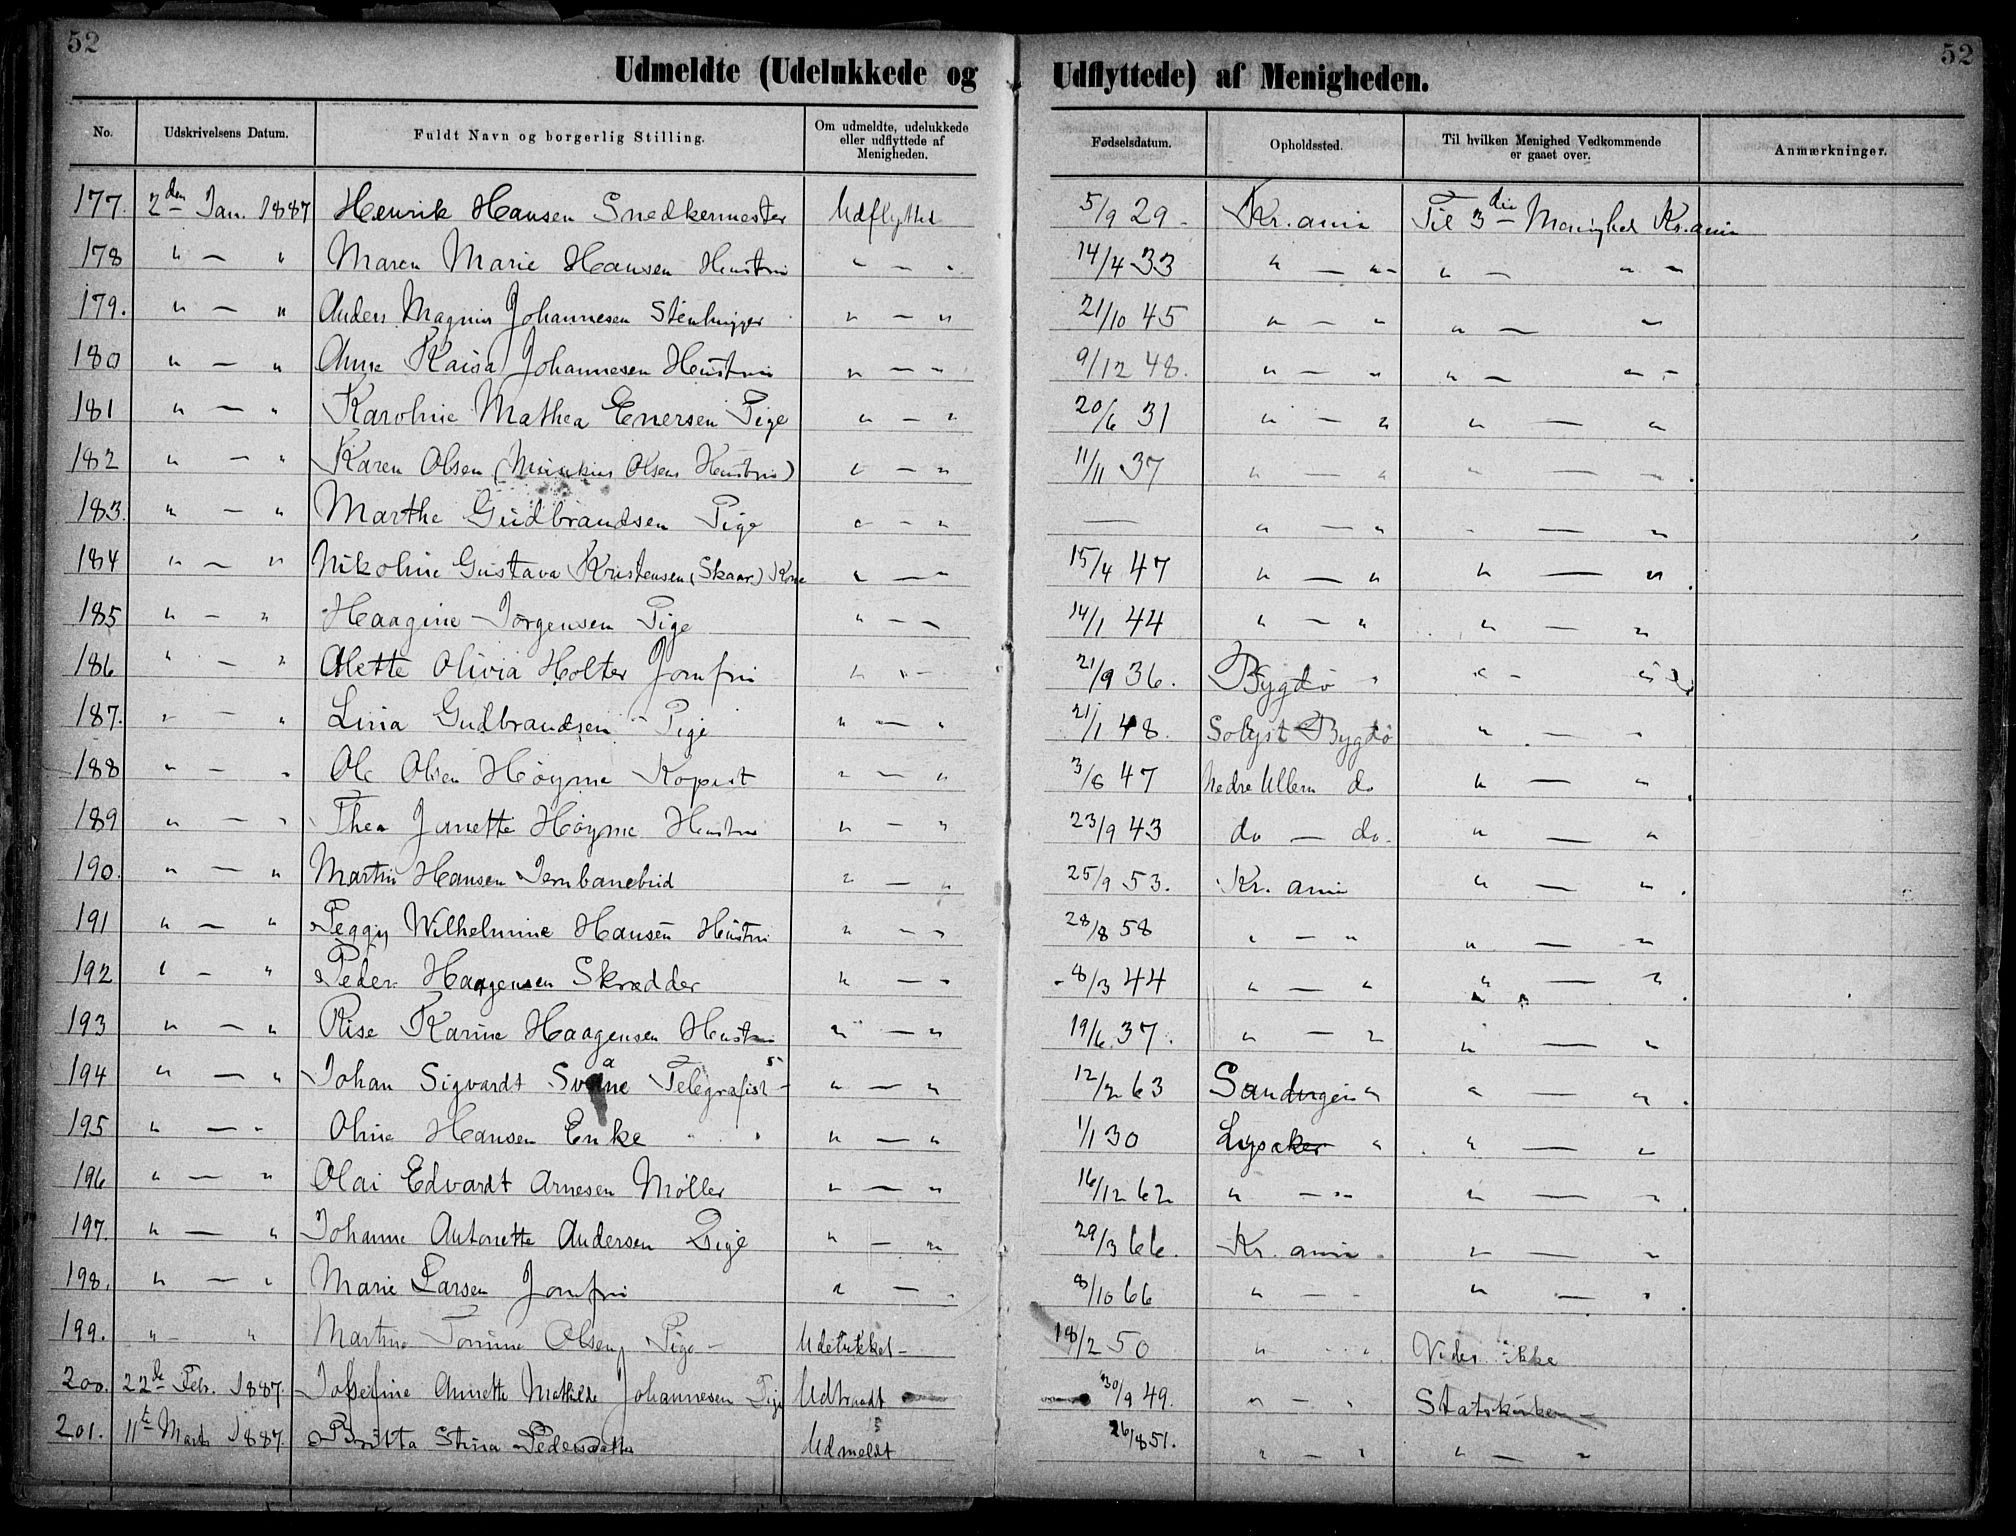 52 52
Udmeldte (Udelukkede og Udflyttede) af Menigheden.
No. Udskrivelsens Datum. Fuldt Navn og borgerlig Stilling. Om udmeldte, udelukkede eller udflyttede af Menigheden. Fødselsdatum. Opholdssted. Til hvilken Menighed Vedkommende er gaaet over. Anmærkninger.
177. 2den Jan. 1887 Henrik Hansen Snedkermester Udflyttet 5/9 29. Kr.ania Til 3die Menighed Kr.ania
178 " — " Maren Marie Hansen Hustru " — " 14/4 33 " — " " — "
179. " — " Anders Magnus Johannesen Stenhugger " — " 21/10 45 " — " " — "
180 " — " Anne Kaisa Johannesen Hustru " — " 9/12 48. " — " " — "
181 " — " Karoline Mathea Enersen Pige " — " 20/6 31 " — " " — "
182 " — " Karen Olsen ( Olsens Hustru) " — " 11/11 37 " — " " — "
183. " — " Marthe Gudbrandsen Pige " — " — " — " " — "
184 " — " Nikoline Gustava Kristensen (Skaar) Kone " — " 15/4 47 " — " " — "
185 " — " Haagine Jørgensen Pige " — " 14/1 44 " — " " — "
186 " — " Alette Olivia Holter Jomfru " — " 21/9 36. Bygdø " " — "
187. " — " Lina Gudbrandsen Pige " — " 21/1 48. Solyst Bygdø " — "
188 " — " Ole Olsen Höyme Kopist " — " 3/8 47 Nedre Ullern do " — "
189 " — " Thea Janette Höyme Hustru " — " 23/9 43 do — do. " — "
190. " — " Martin Hansen Jernbanebud " — " 25/9 53. Kr. ania " — "
191 " — " Peggy Wilhelmine Hansen Hustru " — " 28/8 58 " — " " — "
192 " — " Peder Haagensen Skrædder " — " 8/3 44 " — " " — "
193 " — " Rise Karine Haagensen Hustru " — " 19/6 37. " — " " — "
194 " — " Johan Sigvardt Svane Telegrafist " — " 12/2 63 Sandvigen " " — "
195 " — " Oline Hansen Enke " — " 1/1 30 Lysaker " " — "
196 " — " Olai Edvardt Arnesen Møller " — " 16/12 62 " — " " — "
197. " — " Johanne Antonette Andersen Pige " — " 29/3 66. Kr. ania " — "
198. " — " Marie Larsen Jomfru " — " 8/10 66 " — " " — "
199. " — " Martine Olsen, Pige — Udelukket — 18/2 50 " — " Vides ikke
200. 22de Febr. 1887. Josefine Annette Mathilde Johannesen Pige Udtraadt 30/9 49. " — " Statskirken
201. 11te Marts 1887. Britta Stina Pedersdatter Udmeldt 26/8 51. " — " " — "